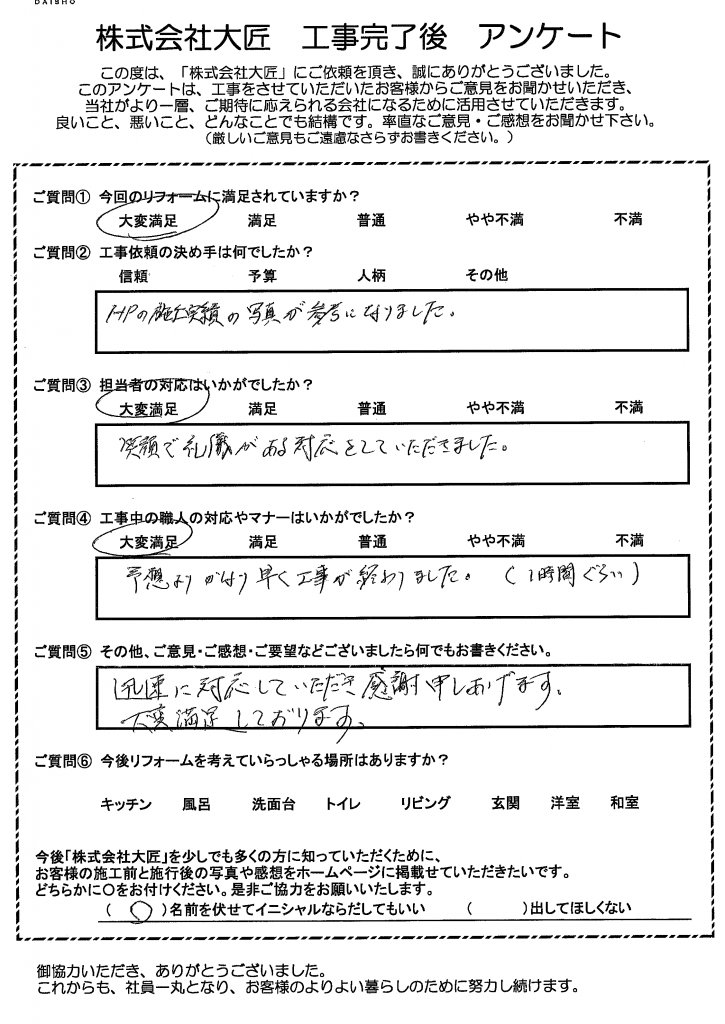 DAISHO
株式会社大匠　工事完了後　アンケート
この度は、「株式会社大匠」にご依頼を頂き、誠にありがとうございました。
このアンケートは、工事をさせていただいたお客様からご意見をお聞かせいただき、
当社がより一層、ご期待に応えられる会社になるために活用させていただきます。
良いこと、悪いこと、どんなことでも結構です。率直なご意見・ご感想をお聞かせ下さい。
（厳しいご意見もご遠慮なさらずお書きください。）
ご質問① 今回のリフォームに満足されていますか？
大変満足　満足　普通　やや不満　不満
ご質問② 工事依頼の決め手は何でしたか？
信頼　予算　人柄　その他
HPの施工実績の写真が参考になりました。
ご質問③ 担当者の対応はいかがでしたか？
大変満足　満足　普通　やや不満　不満
笑顔で礼儀がある対応をしていただきました。
ご質問④ 工事中の職人の対応やマナーはいかがでしたか？
大変満足　満足　普通　やや不満　不満
予想よりかなり早く工事が終わりました。（1時間ぐらい）
ご質問⑤ その他、ご意見・ご感想・ご要望などございましたら何でもお書きください。
迅速に対応していただき感謝申しあげます。
大変満足しております。
ご質問⑥ 今後リフォームを考えていらっしゃる場所はありますか？
キッチン　風呂　洗面台　トイレ　リビング　玄関　洋室　和室
今後「株式会社大匠」を少しでも多くの方に知っていただくために、
お客様の施工前と施行後の写真や感想をホームページに掲載せていただきたいです。
どちらかに○をお付けください。是非ご協力をお願いいたします。
（ ○ ）名前を伏せてイニシャルならだしてもいい　（　　）出してほしくない
御協力いただき、ありがとうございました。
これからも、社員一丸となり、お客様のよりよい暮らしのために努力し続けます。